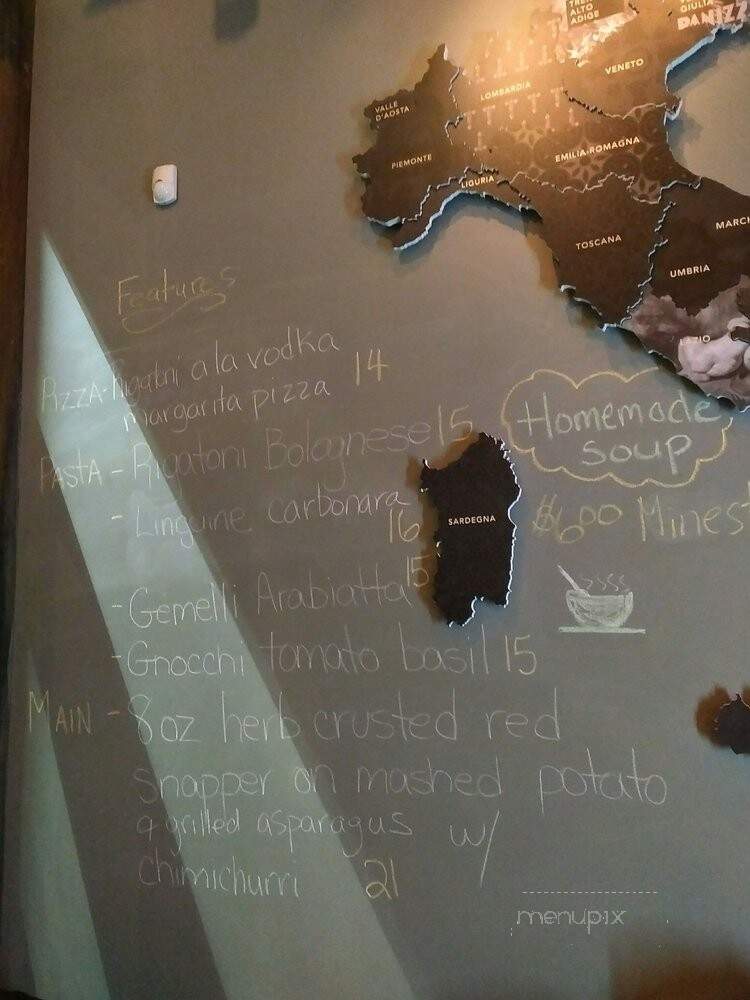 TREN
ALTO
ADIGE
GIULIA
DANIZZ
VENETO
LOMBARDIA
VALLE
D'AOSTA
PIEMONTE
EMILIA-ROMAGNA
LIGURIA
TOSCANA
MARCH
UMBRIA
Features
PIZZA - Rigatoni a la vodka
margarita pizza 14
PASTA - Rigatoni Bolagnese 15
- Linguine carbonara
16
15
- Gemelli Arabiatta
- Gnocchi tomato basil 15
MAIN - 8oz herb crusted red
snapper on mashed potato
& grilled asparagus w/
chimichurri 21
Homemade
soup
$6.00 Minest
SARDEGNA
menupix